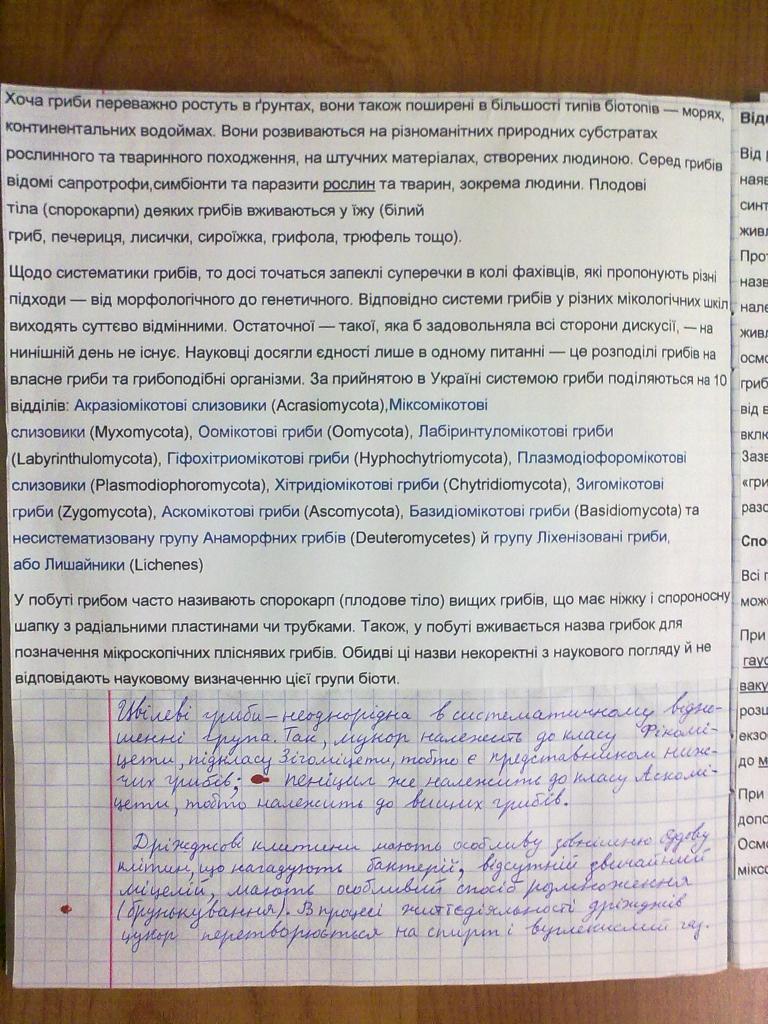 Хоча гриби переважно ростуть в ґрунтах, вони також поширені в більшості типів біотопів — морях,
континентальних водоймах. Вони розвиваються на різноманітних природних субстратах
рослинного та тваринного походження, на штучних матеріалах, створених людиною. Серед грибів
відомі сапротрофи,симбіонти та паразити рослин та тварин, зокрема людини. Плодові
тіла (спорокарпи) деяких грибів вживаються у їжу (білий
гриб, печериця, лисички, сироїжка, грифола, трюфель тощо).
Щодо систематики грибів, то досі точаться запеклі суперечки в колі фахівців, які пропонують різні
підходи — від морфологічного до генетичного. Відповідно системи грибів у різних мікологічних шкіл
виходять суттєво відмінними. Остаточної — такої, яка б задовольняла всі сторони дискусії, — на
нинішній день не існує. Науковці досягли єдності лише в одному питанні — це розподілі грибів на
власне гриби та грибоподібні організми. За прийнятою в Україні системою гриби поділяються на 10
відділів: Акразіомікотові слизовики (Acrasiomycota),Міксомікотові
слизовики (Myxomycota), Оомікотові гриби (Oomycota), Лабіринтуломікотові гриби
(Labyrinthulomycota), Гіфохітриомікотові гриби (Hyphochytriomycota), Плазмодіофоромікотові
слизовики (Plasmodiophoromycota), Хітридіомікотові гриби (Chytridiomycota), Зигомікотові
гриби (Zygomycota), Аскомікотові гриби (Ascomycota), Базидіомікотові гриби (Basidiomycota) та
несистематизовану групу Анаморфних грибів (Deuteromycetes) й групу Ліхенізовані гриби,
або Лишайники (Lichenes)
У побуті грибом часто називають спорокарп (плодове тіло) вищих грибів, що має ніжку і спороносну
шапку з радіальними пластинами чи трубками. Також, у побуті вживається назва грибок для
позначення мікроскопічних пліснявих грибів. Обидві ці назви некоректні з наукового погляду й не
відповідають науковому визначенню цієї групи біоти.
Цвілеві гриби – неоднорідна в систематичному відно-
шенні група. Так, мукор належить до класу Фікомі-
цети, підкласу Зігоміцети, тобто є представником ниж-
чих грибів; пеніцил же належить до класу Аскомі-
цети, тобто належить до вищих грибів.
Дріжджові клітини мають особливу зовнішню будову
клітин, що нагадують бактерії, відсутній звичайний
міцелій, мають особливий спосіб розмноження
(брунькування). В процесі життєдіяльності дріжджів
цукор перетворюється на спирт і вуглекислий газ.
Від
наяв
синт
живл
Прот
назв
нале
живл
осмо
гриб
від в
вклю
Зазв
«гри
разо
Спо
Всі г
може
При
гаус
ваку
розш
екзо
до м
При
допо
Осмо
міксо